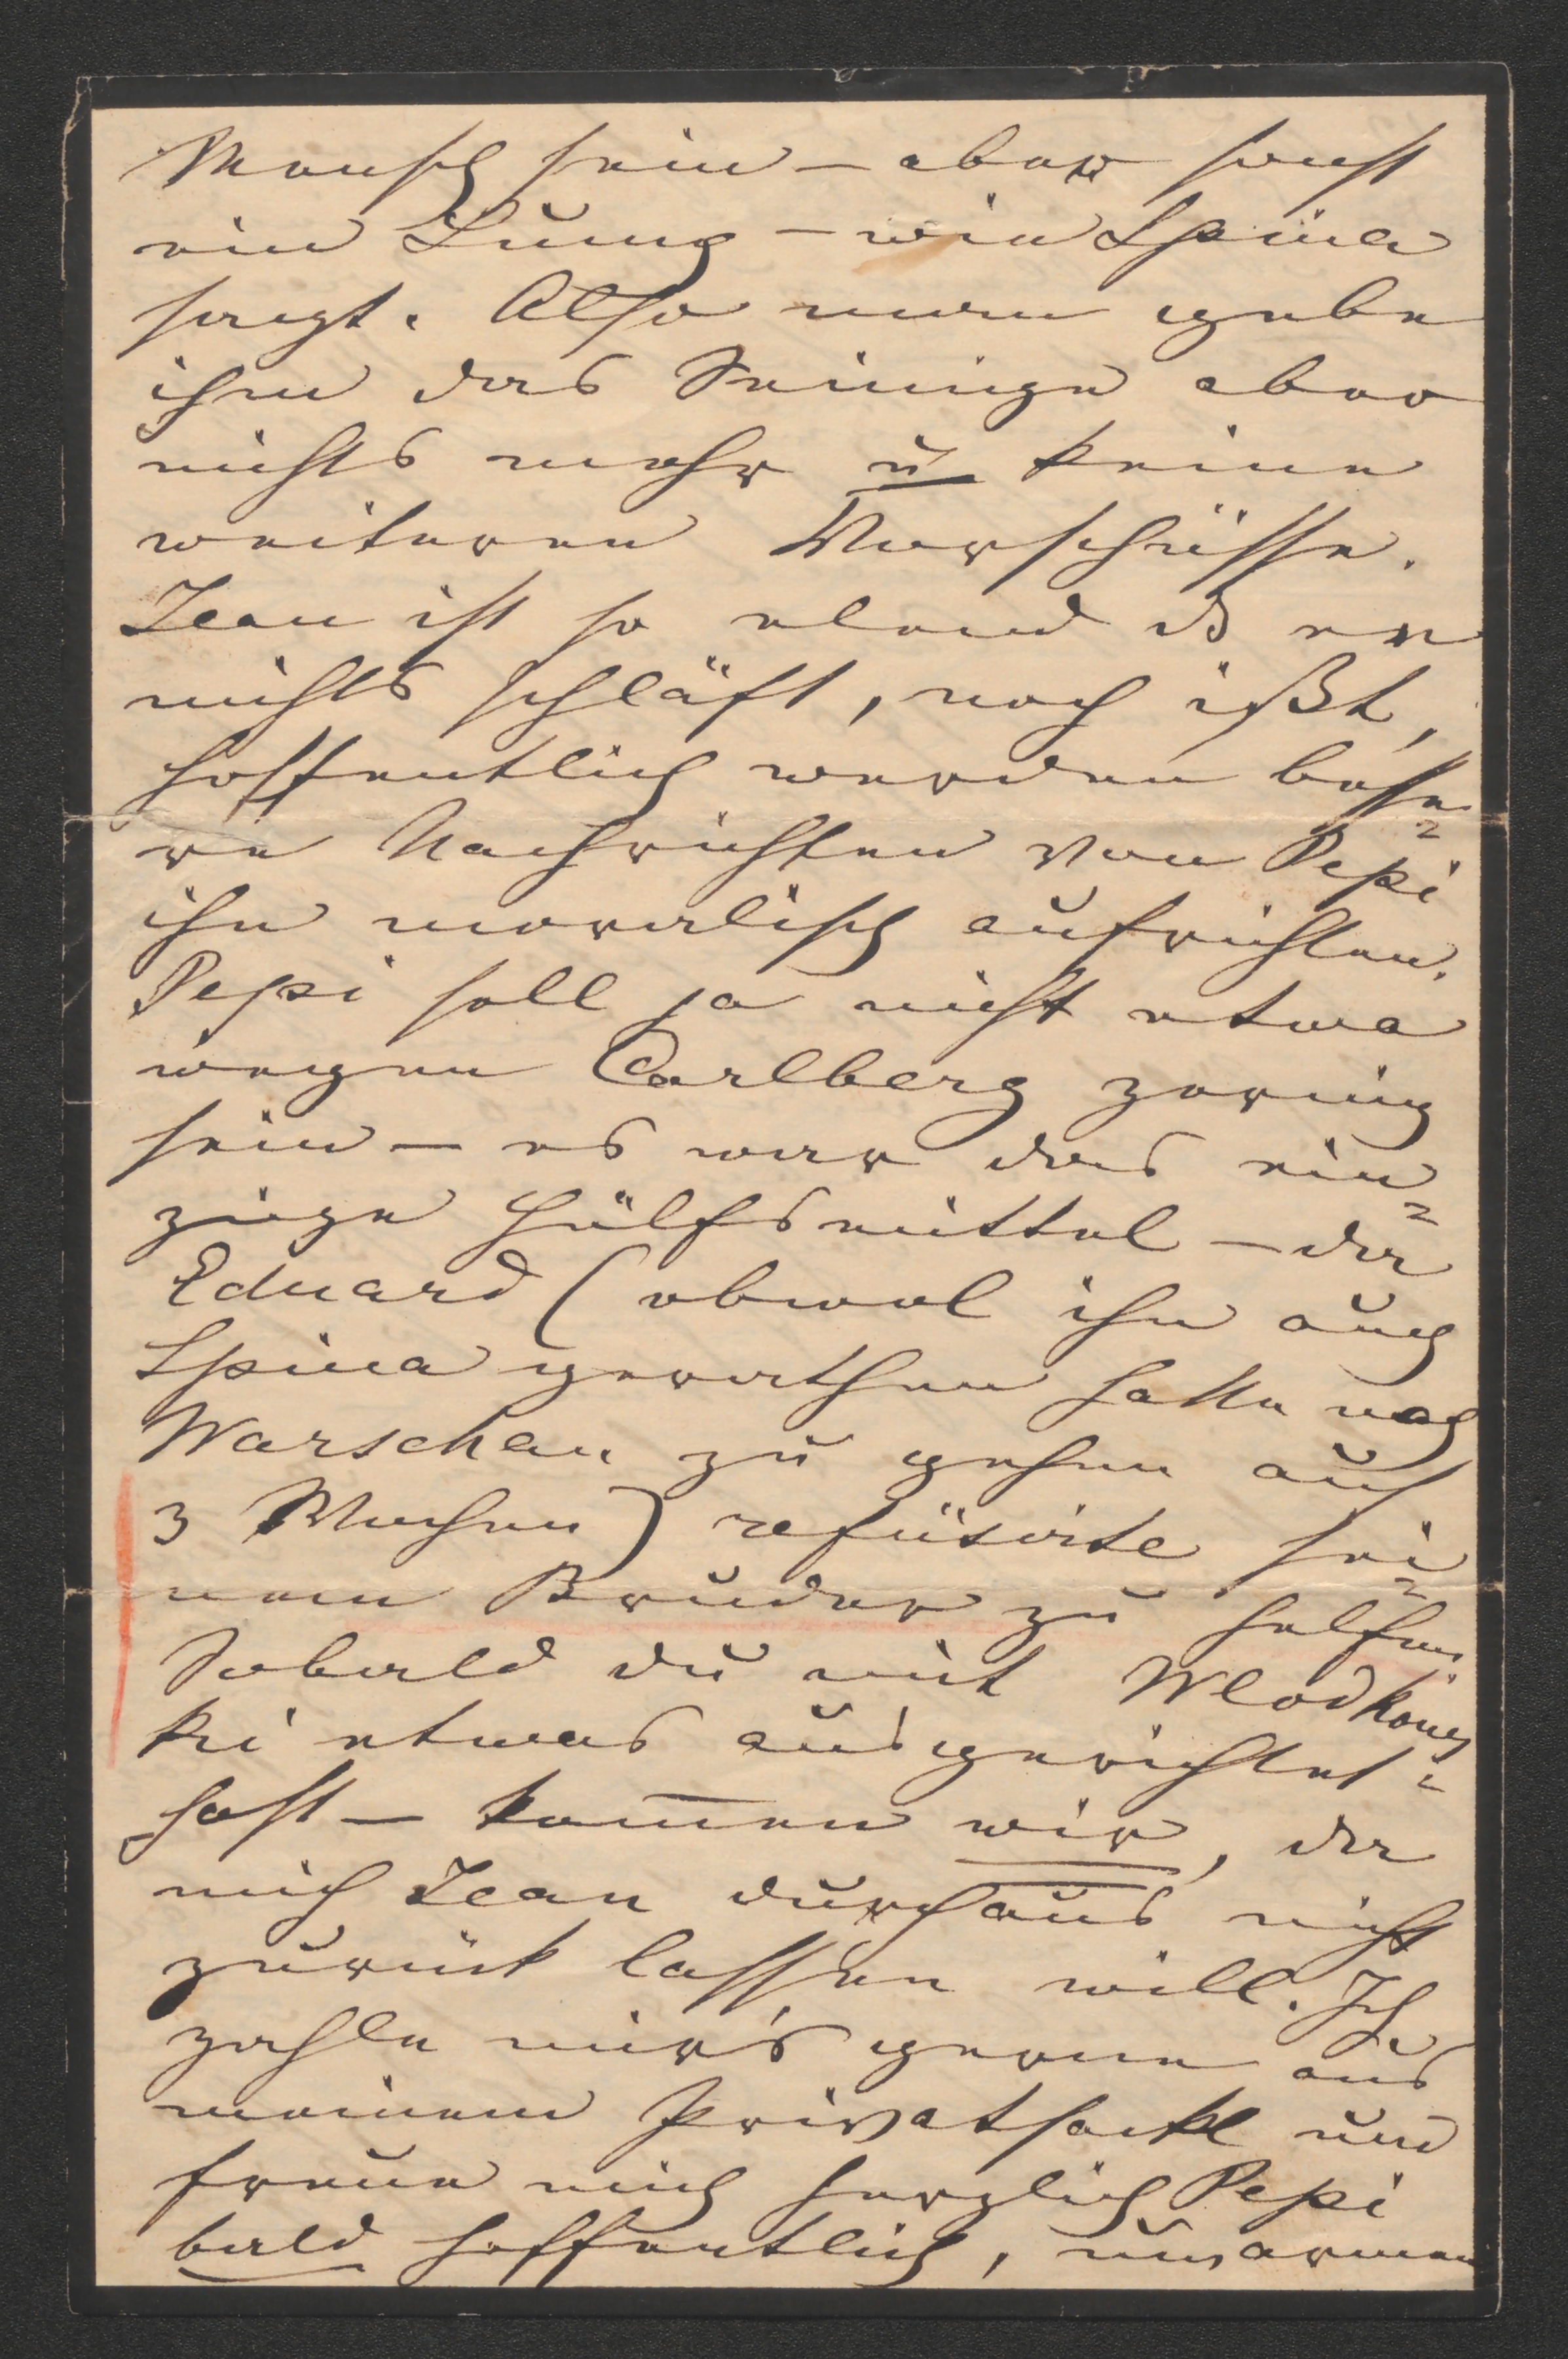 Mensch sein – aber sonst
ein Lump – wie Spina
sagt. Also man gebe
ihm das Seinige aber
nichts mehr u keine
weiteren Vorschüsse.
Jean ist so elend dß er
nichts schläft, noch ißt,
hoffentlich werden besse=
re Nachrichten von Pepi
ihn moralisch aufrichten.
Pepi soll ja nicht etwa
wegen Carlberg zornig
sein – es war das ein=
zige Hülfsmittel – da
Eduard (obwol ihn auch
Spina gerathen hatte nach
Warschau zu gehen auf
3 Wochen) refüsirte sei=
nem Bruder zu helfen.
Sobald du mit Wlodkows
ki etwas ausgerichtet
hast – kom̄en wir, da
mich Jean durchaus nicht
zurück lassen will. Ich
zahle mir's gerne aus
meinem Privatsackl und
freue mich herzlich Pepi
bald hoffentlich, umarmen